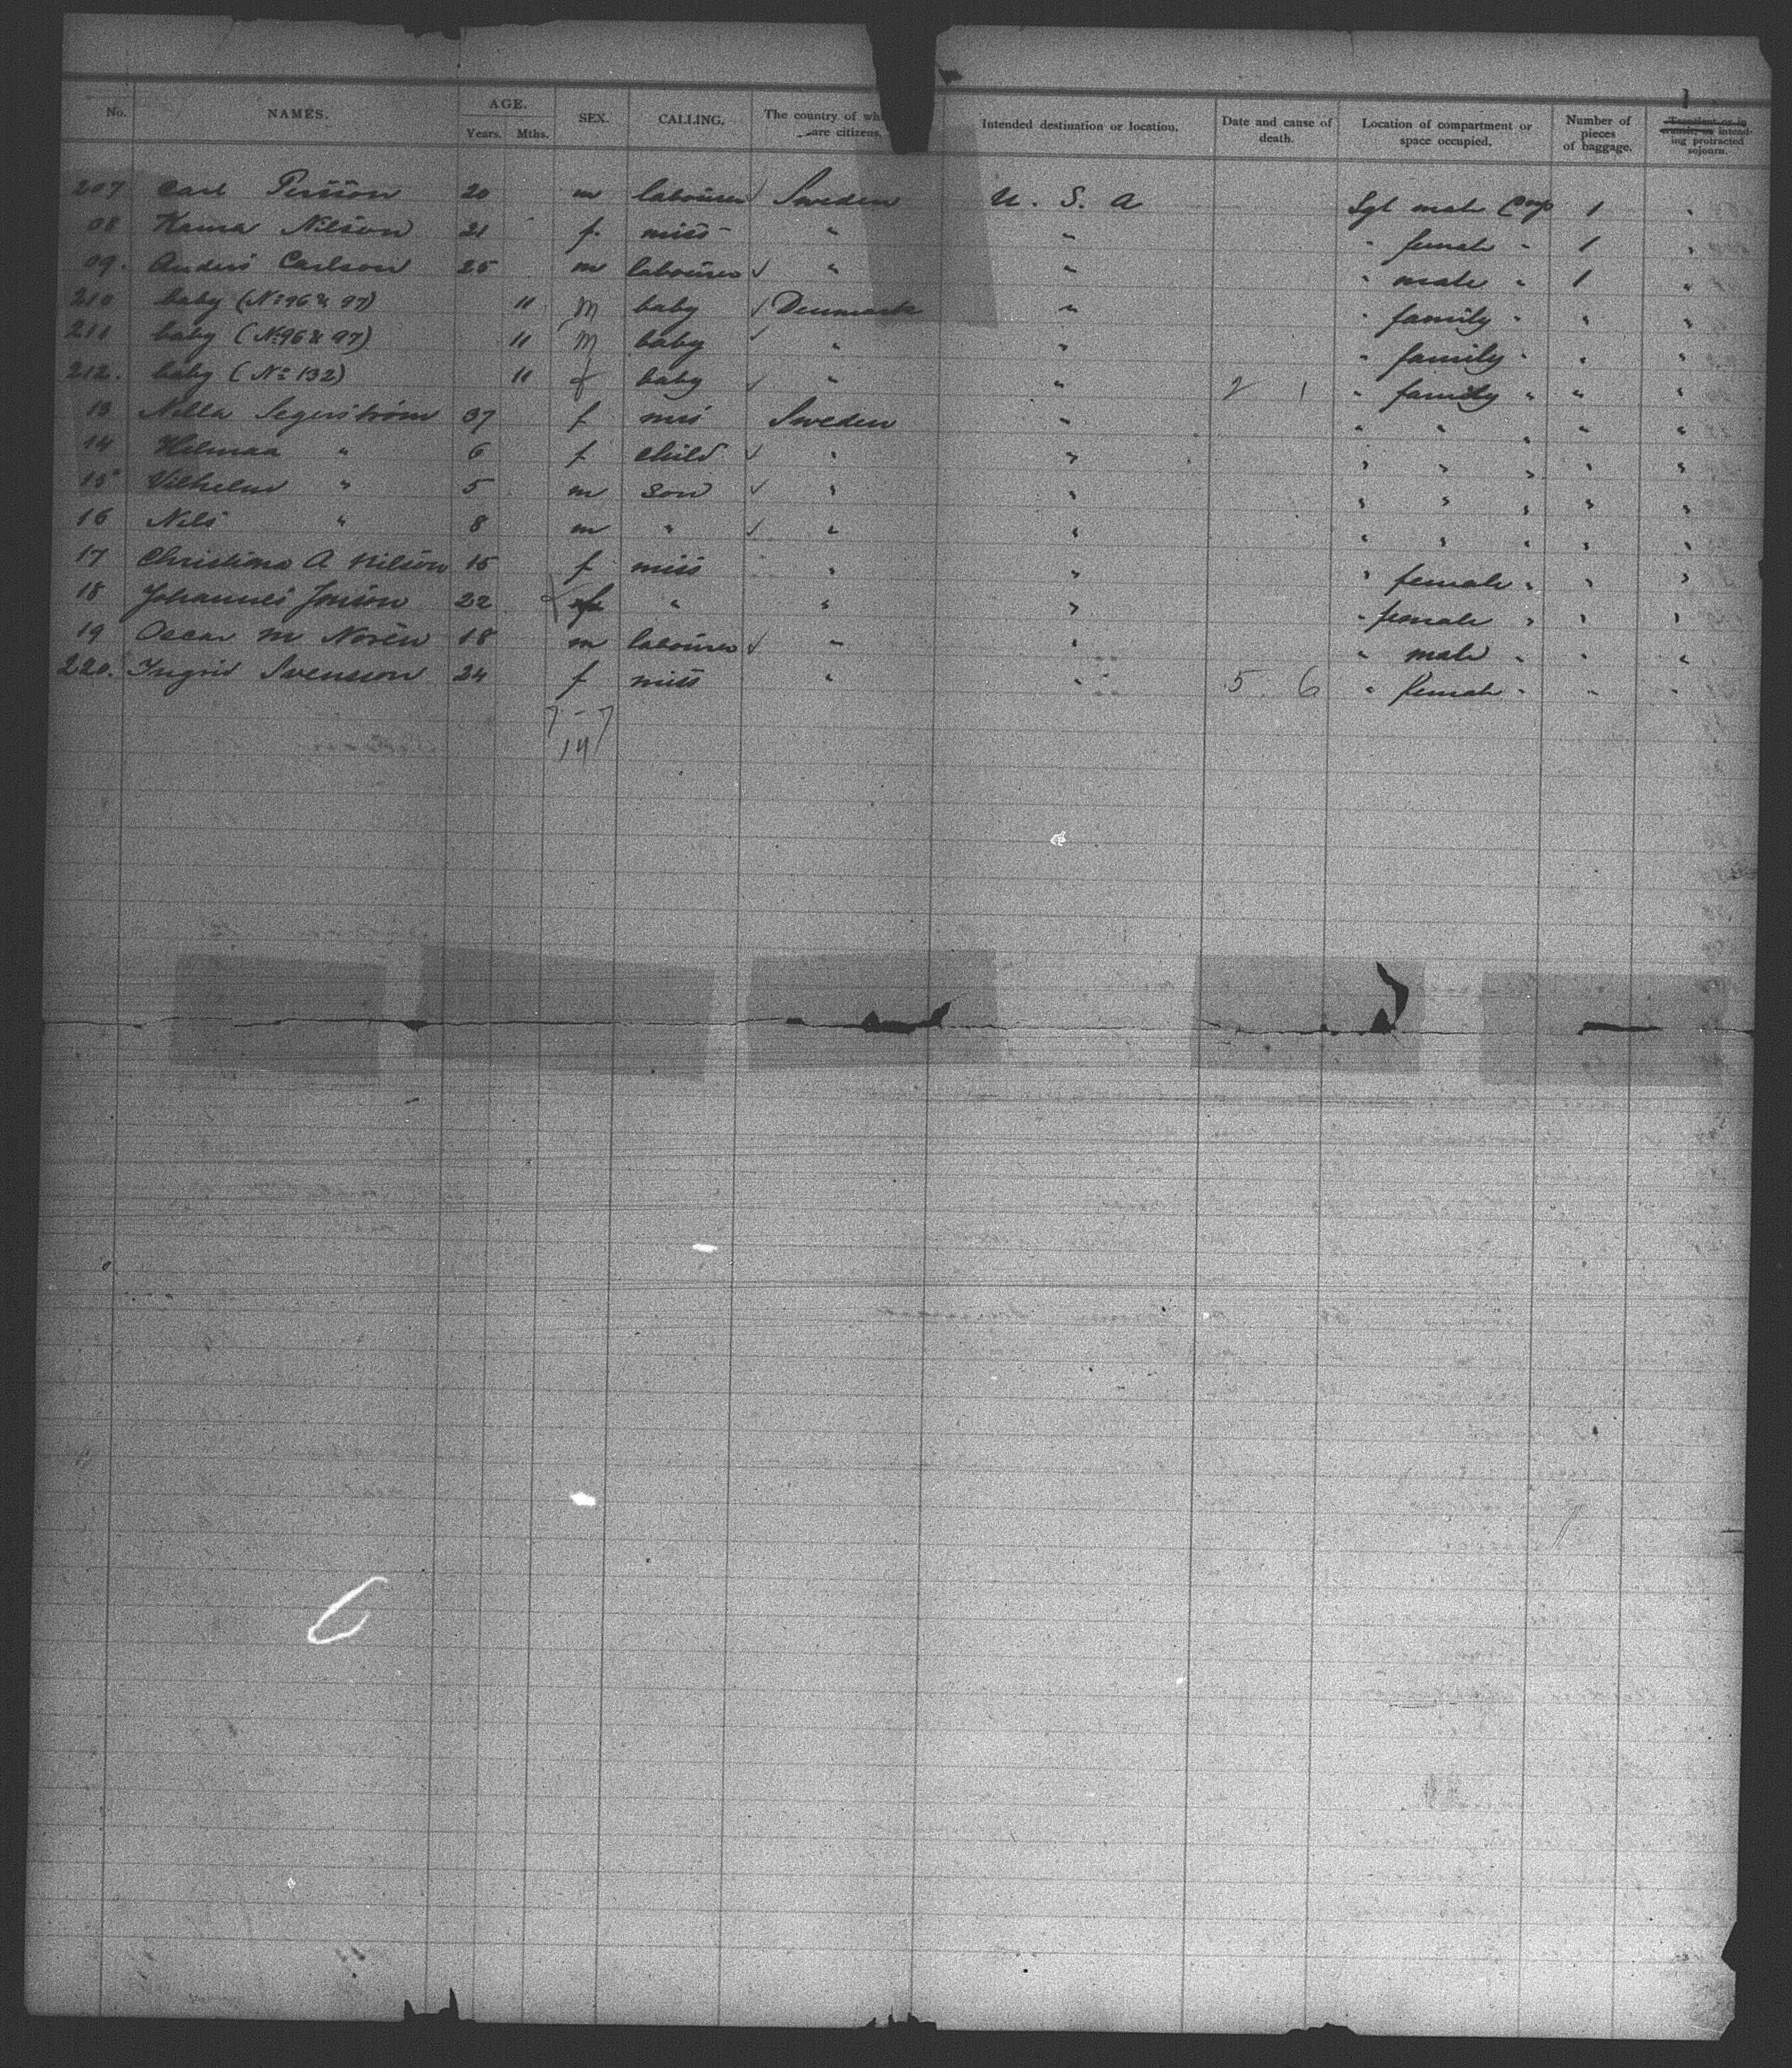 No. NAMES. AGE. Years. Mths. SEX. CALLING. The country of wh are citizens. Intended destination or location. Date and cause of death. Location of compartment or space occupied. Number of pieces of baggage. Transient or in transit, or intending protracted sojourn.
207 Carl Persson 20 m labourer ✓ Sweden U. S. A Sgl male Comp 1 "
08 Hanna Nilson 21 f. miss " " " female " 1 "
09. Anders Carlson 25 m labourer ✓ " " " male " 1 "
210 baby (No 96 & 97) 11 m baby ✓ Denmark " " family " " "
211 baby (No 96 & 97) 11 m baby ✓ " " " family " " "
212. baby (No 132) 11 f baby ✓ " " 2 1 " family " " "
13 Nilla Segerström 37 f mrs Sweden " " " " " "
14 Hilmaa " 6 f child ✓ " " " " " " "
15 Vilhelm " 5 m son ✓ " " " " " " "
16 Nils " 8 m " ✓ " " " " " " "
17 Christina A Nilson 15 f miss " " " female " " "
18 Johannes Jonson 22 f " " " " female " " "
19 Oscar M Norén 18 m labourer ✓ " " " male " " "
220. Ingrid Svensson 24 f miss " " 5 6 " female " " "
7 - 7
14